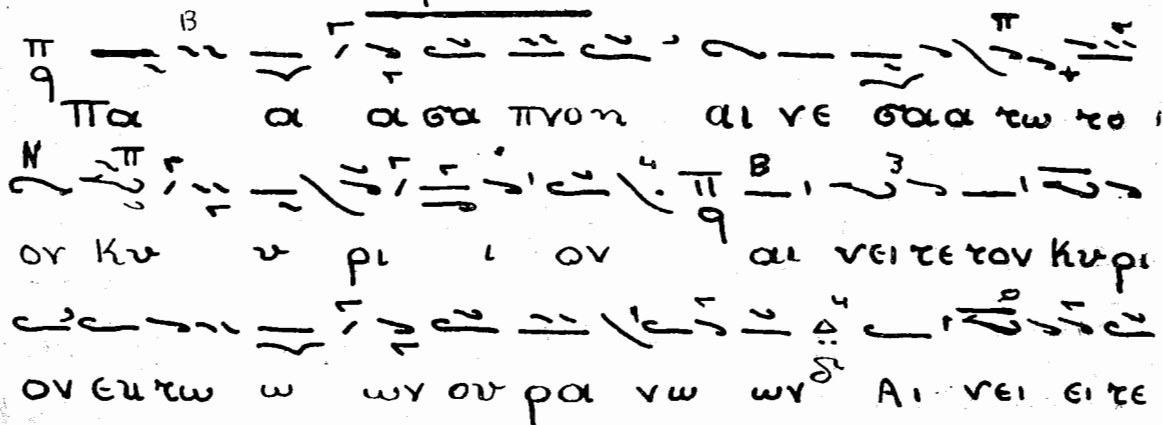 Πα α α σα πνοη αι νε σαα τω το
ον Κυ υ ρι ι ον αι νει τε τον Κυρι
ον εκ τω ω ων ου ρα νω ων Αι νει ει τε